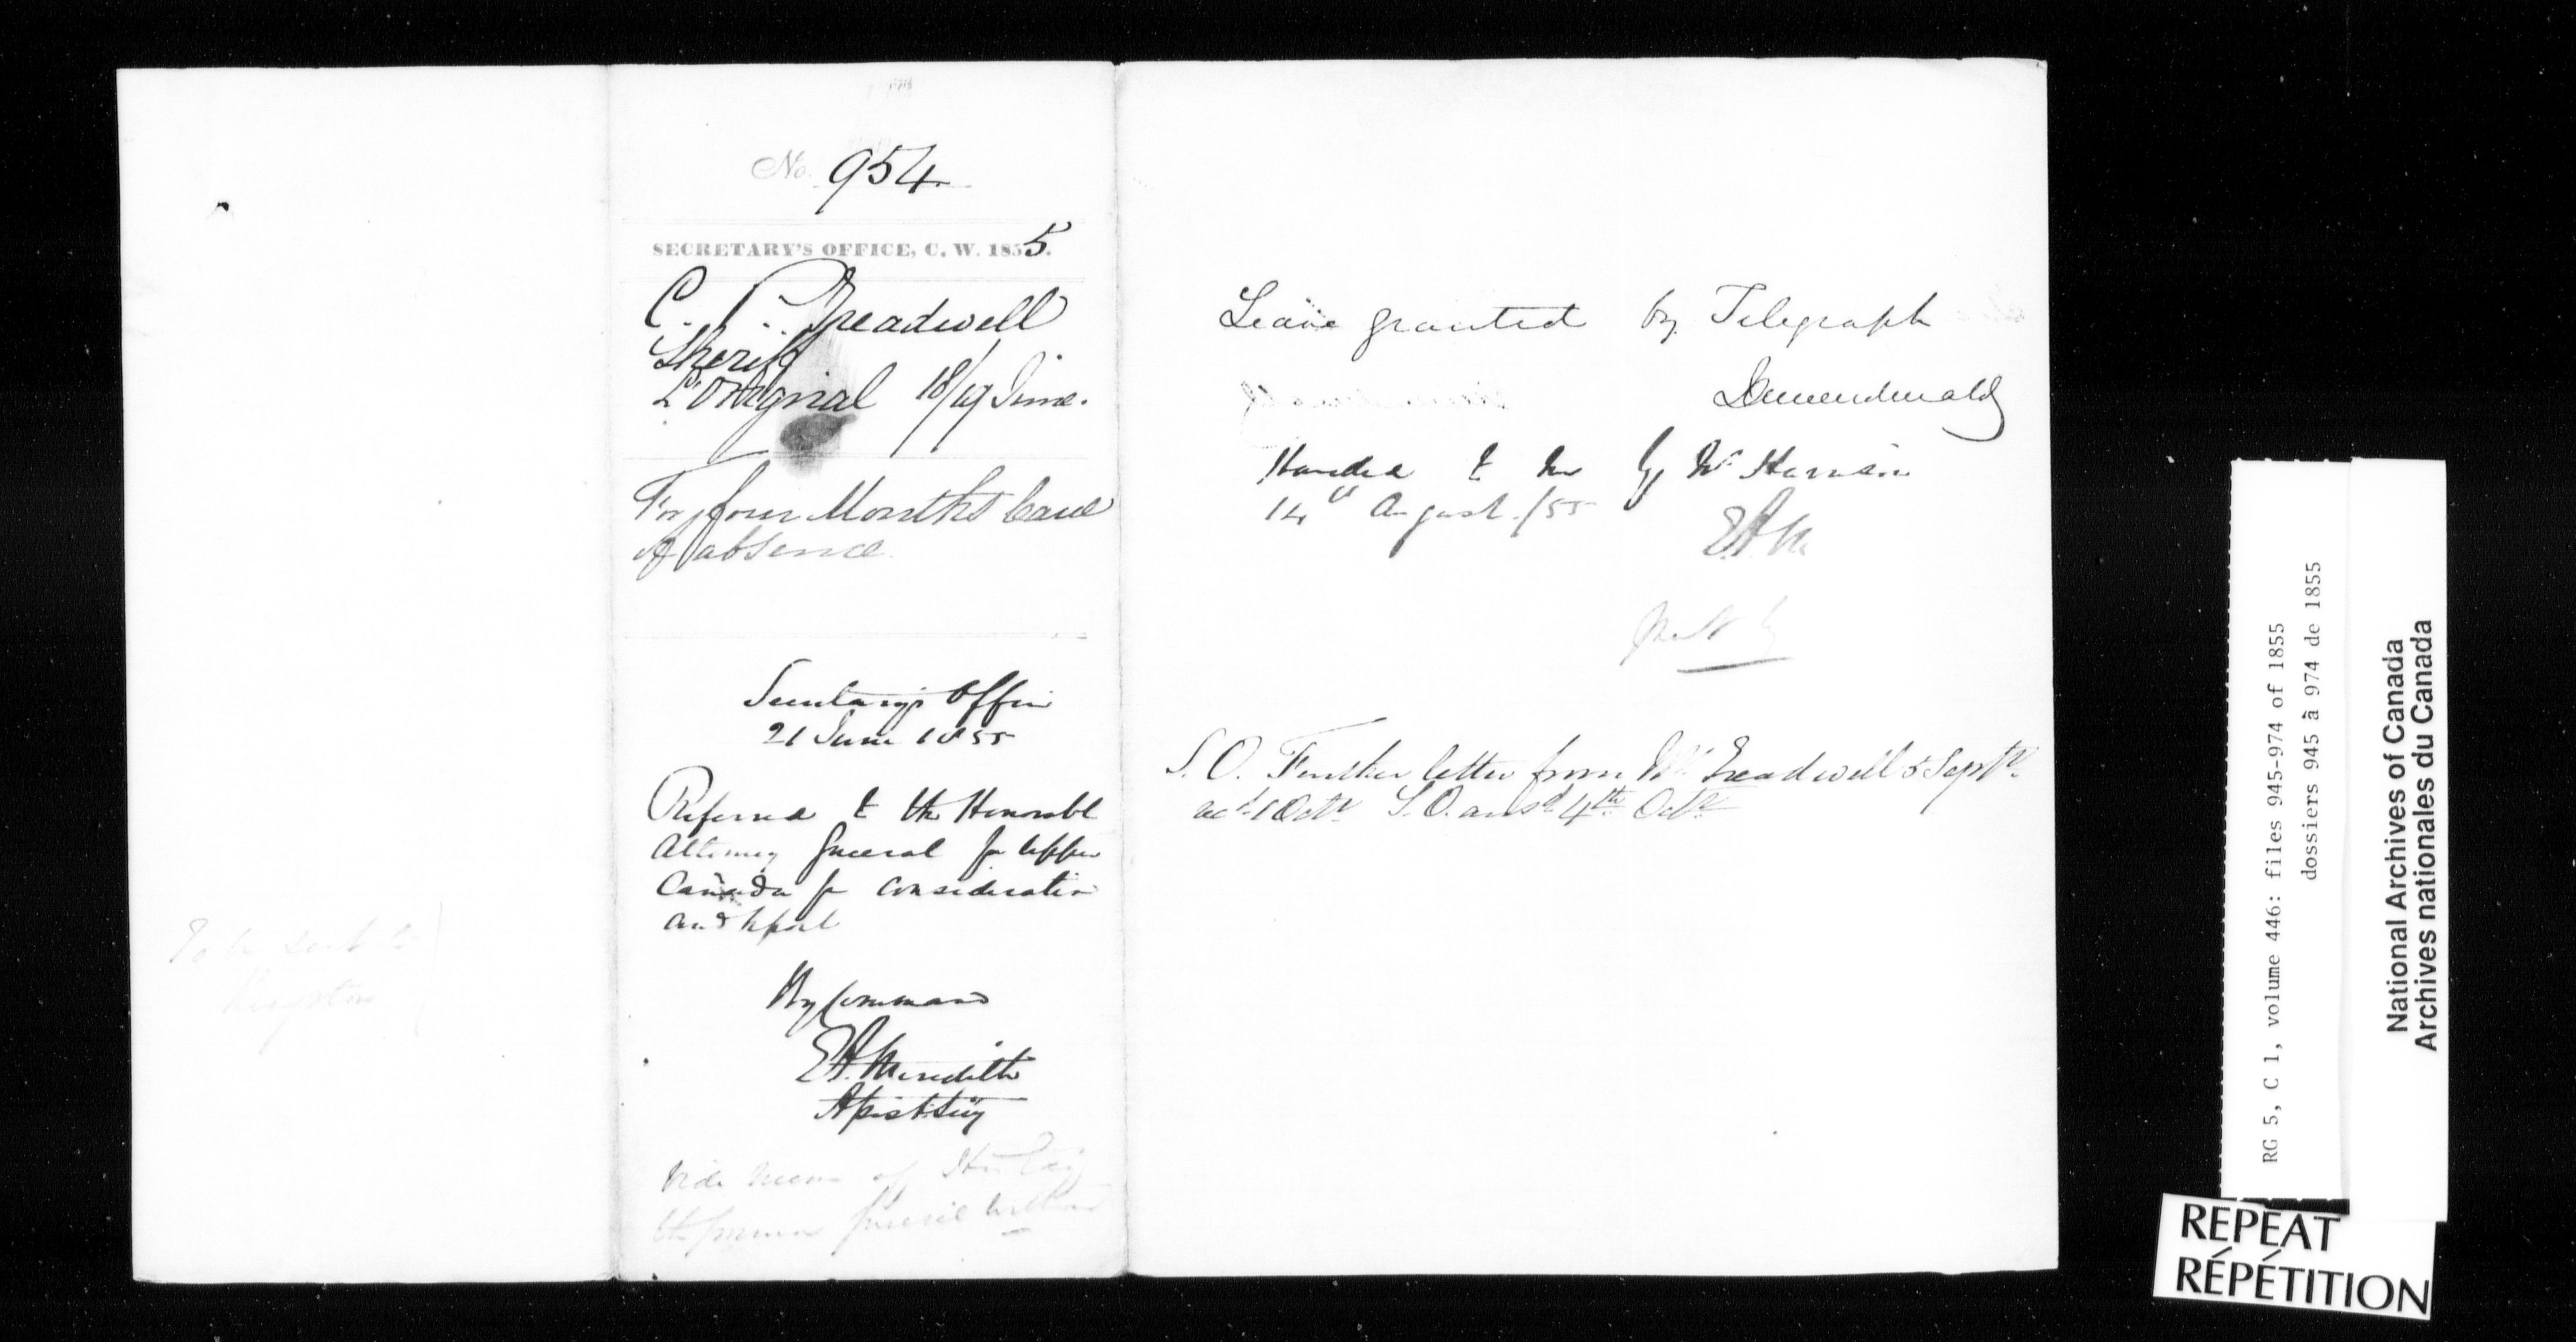 No. 954
SECRETARY'S OFFICE, C. W. 1855.
C. P. Treadwell
Sheriff
L'Orignal 18/19 June.
For four Months leave
of absence.
Secretary's Office
21 June 1855
Referred to the Honorable
Attorney General for Upper
Canada for consideration
and report
By Command
E A Meredith
Asist Secy
To be sent to
Kingston
Leave granted by Telegraph
Handed to me by Mr
14th August /55
E.A.M.
S. O. Further letter from Mr Treadwell 5 Septr.
recd 1 Octr S. O. ansd 4th Octr
RG 5, C 1, volume 446: files 945-974 of 1855
dossiers 945 à 974 de 1855
National Archives of Canada
Archives nationales du Canada
REPEAT
RÉPÉTITION